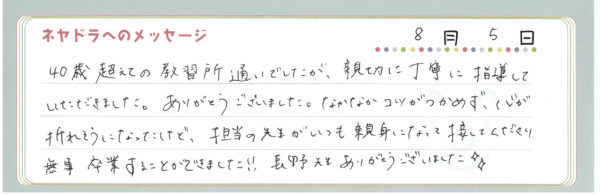 ネヤドラへのメッセージ 8月 5日
40歳超えての教習所通いでしたが、親切に丁寧に指導して
いただきました。ありがとうございました。なかなかコツがつかめず、心が
折れそうになったけど、担当の先生がいつも親身になって接してくださり
無事卒業することができました!! 長野先生ありがとうございました☆☆